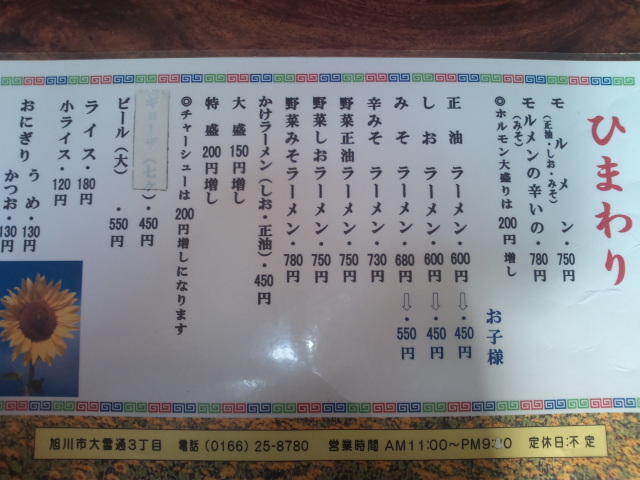 ひまわり
モルメン・750円
(正油・しお・みそ)
モルメンの辛いの・780円
(みそ)
◎ホルモン大盛りは200円増し
お子様
正油ラーメン・600円⇨・450円
しおラーメン・600円⇨・450円
みそラーメン・680円⇨・550円
辛みそラーメン・730円
野菜正油ラーメン・750円
野菜しおラーメン・750円
野菜みそラーメン・780円
かけラーメン(しお・正油)・450円
大盛150円増し
特盛200円増し
◎チャーシューは200円増しになります
ギョーザ(七ケ)・450円
ビール(大)・550円
ライス・180円
小ライス・120円
おにぎり うめ・130円
かつお・130円
旭川市大雪通3丁目 電話(0166)25-8780 営業時間 AM11:00〜PM9:00 定休日:不定